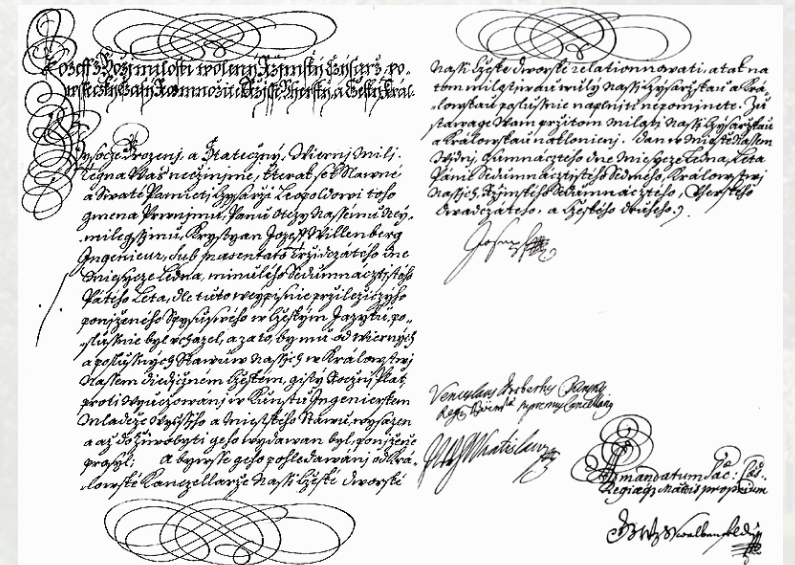 Jozeff z Boži milosti wolený Ržimský Cysarž, po-
wssecky Časy Rozmnožitel Ržisse, Uherský a Český Král.
Wysoce Urozeni, a Statečný, Wěrnj Milj.
Tegna Was nečinjme, kterak
a Swaté Paměti Cysarži Leopoldowi toho
gmena Prwnjmu, Panu Otczy Nassemu Ney-
milegssimu, Krystyan Jozeff Willenberg
Ingenieur, sub praesentato Tržidczátého dne
Měsycze Ledna, minulého Sedumnacztistého
Pátého Léta, dle tuto w
poníženého Spysu swého w Českým Jazyku, po-
slussně byl wcházel, a za to, by mu od wiernych
a poslussných Stawuw Nassych w Králowstwj
Nassem diedičném Českém, gistý Ročný Plat,
proti wyučowánj w Kunstu Ingenierském
Mládeže Wyssiho a Nižssiho Stawu, wysazen
a až do žiwobyti geho wydáwan byl, ponjženě
prosyl; a bywsse geho pohledáwanj od Krá-
lowské Kanczelláře Nassi České Dworské
Nassi České Dworské relationowati, a tak na
tom milostiwau wůly Nassi Cysaržskau a Krá-
lowskau poslussně naplniti nepominete. Zů-
stawage Wám přitom Milostj Nassi Cysaržskau
a Králowskau naklonieni. Dan w Městě Nassem
Wjdni, dne Měsycze Ledna, Léta
Páně Sedumnacztistého Sedmého, Králowstwj
Nassych, Ržimského Sedumnacztého, Uherského
Dwadczátého, a Českého druhého.
Joseph
Venceslaus Norbertus
Regis Bohemiae Supremus Cancellarius
Wratislaw
Ad mandatum Sac: Caes:
Regiaeque Mattis proprium